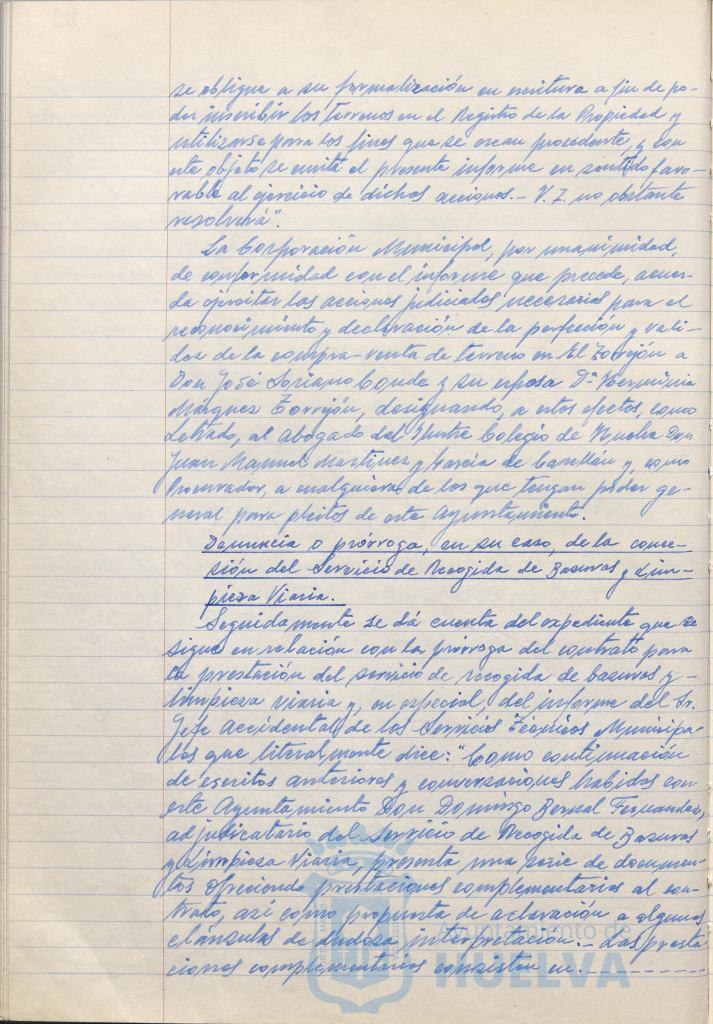 se obligue a su formalización en escritura a fin de po-
der inscribir los terrenos en el Registro de la Propiedad y
utilizarse para los fines que se crean procedente, y con
este objeto se emite el presente informe en sentido favo-
rable al ejercicio de dichas acciones.- V.I. no obstante
resolverá".
La Corporación Municipal, por unanimidad,
de conformidad con el informe que precede, acuer-
da ejercitar las acciones judiciales necesarias para el
reconocimiento y declaración de la perfección y vali-
dez de la compra-venta de terreno en El Torrejón a
Don José Soriano Conde y su esposa Dª Herminia
Márquez Torrejón, designando, a estos efectos, como
Letrado, al Abogado del Iltre Colegio de Huelva Don
Juan Manuel Martínez y García de Casellán y, como
Procurador, a cualquiera de los que tengan poder ge-
neral para pleitos de este Ayuntamiento.
Denuncia o prórroga, en su caso, de la conce-
sión del Servicio de Recogida de Basuras y Lim-
pieza Viaria.
Seguidamente se dá cuenta del expediente que se
sigue en relación con la prórroga del contrato para
la prestación del servicio de recogida de basuras y
limpieza viaria y, en especial, del informe del Sr.
Jefe Accidental de los Servicios Técnicos Municipa-
les que literalmente dice: "Como continuación
de escritos anteriores y conversaciones habidas con
este Ayuntamiento Don Domingo Bernal Fernandez,
adjudicatario del Servicio de Recogida de Basuras
y Limpieza Viaria, presenta una serie de documen-
tos ofreciendo prestaciones complementarias al con-
trato, así como propuesta de aclaración a algunas
cláusulas de dudosa interpretación.- Las presta
ciones complementarias consisten en:----------
Ayuntamiento de
HUELVA